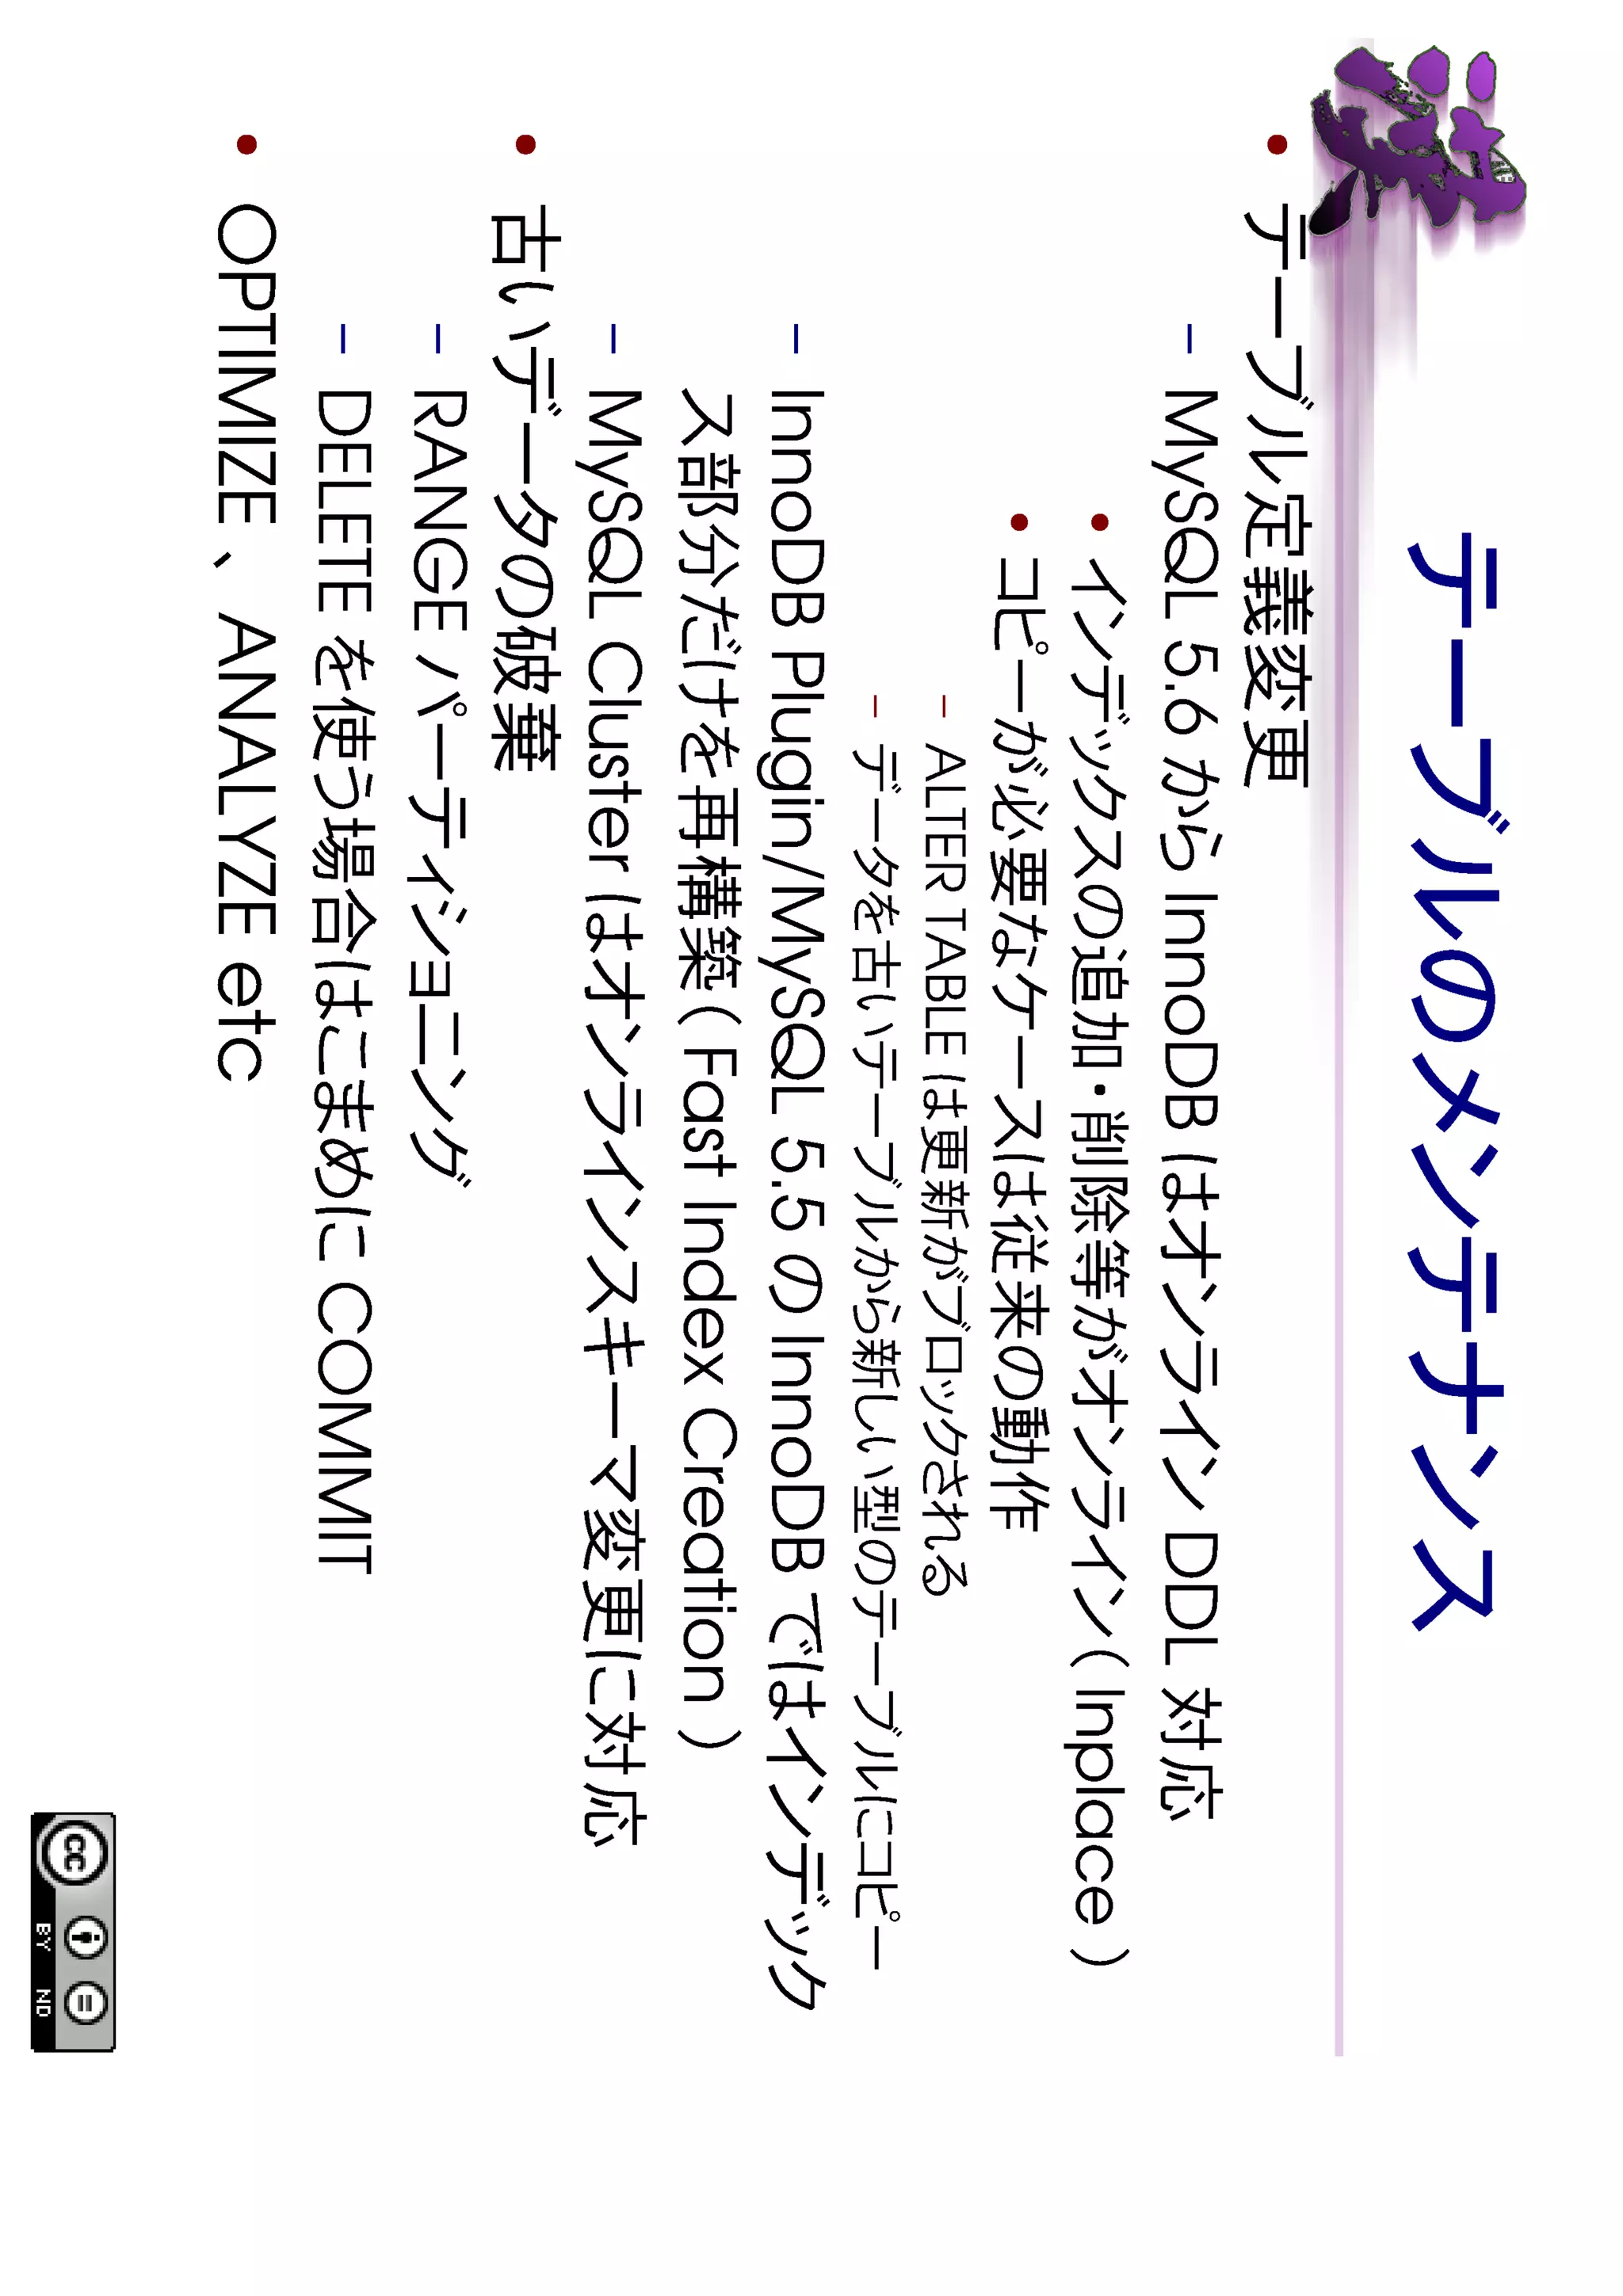 テーブルのメンテナンス
• テーブル定義変更
– MySQL 5.6 から InnoDB はオンライン DDL 対応
• インデックスの追加・削除等がオンライン( Inplace )
• コピーが必要なケースは従来の動作
– ALTER TABLE は更新がブロックされる
– データを古いテーブルから新しい型のテーブルにコピー
– InnoDB Plugin/MySQL 5.5 の InnoDB ではインデック
ス部分だけを再構築( Fast Index Creation )
– MySQL Cluster はオンラインスキーマ変更に対応
• 古いデータの破棄
– RANGE パーティショニング
– DELETE を使う場合はこまめに COMMIT
• OPTIMIZE 、ANALYZE etc
cc
BY ND